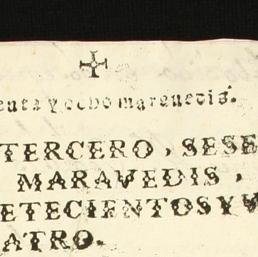 enta y ocho marauedis.
TERCERO, SESE
MARAVEDIS,
ETECIENTOS Y V
ATRO.